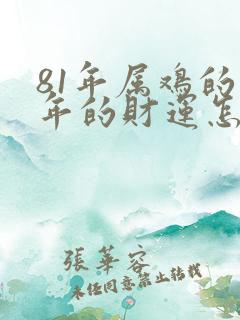 81年属鸡的
年的财运怎
張華容
未经同意禁止转载